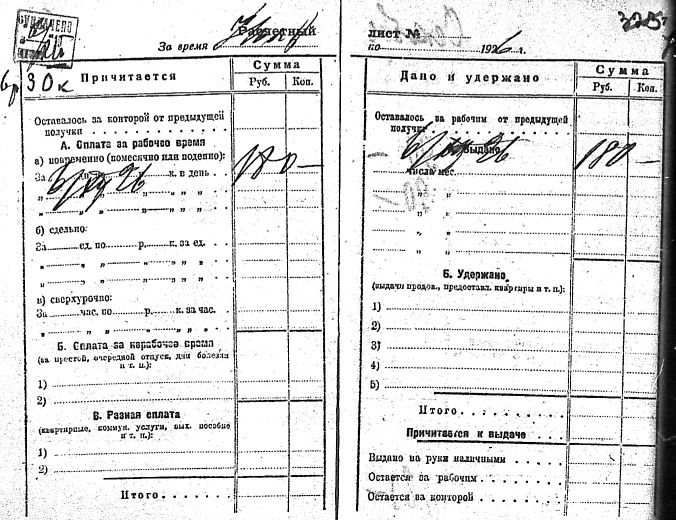 Расчетный
За время
30 к
Причитается
Сумма
Руб. Коп.
Оставалось за конторой от предыдущей
получки
А. Сплата за рабочее время
а) повременно (помесячно или поденно):
За к. в день
180 —
б) сдельно:
За ед. по р. к. за ед.
в) сверхурочно:
За час. по р. к. за час.
Б. Сплата за нерабочее время
(за простой, очередной отпуск, дни болезни
и т. п.):
1)
2)
В. Разная сплата
(квартирные, коммун. услуги, вых. пособие
и т. п.):
1)
2)
Итого
лист №
по 1926 г.
Дано и удержано
Сумма
Руб. Коп.
Оставалось за рабочим от предыдущей
получки
Выдано
числа мес.
180 —
Б. Удержано
(выдачи продов., предоставл. квартиры и т. п.):
1)
2)
3)
4)
5)
Итого
Причитается к выдаче
Выдано на руки наличными
Остается за рабочим
Остается за конторой